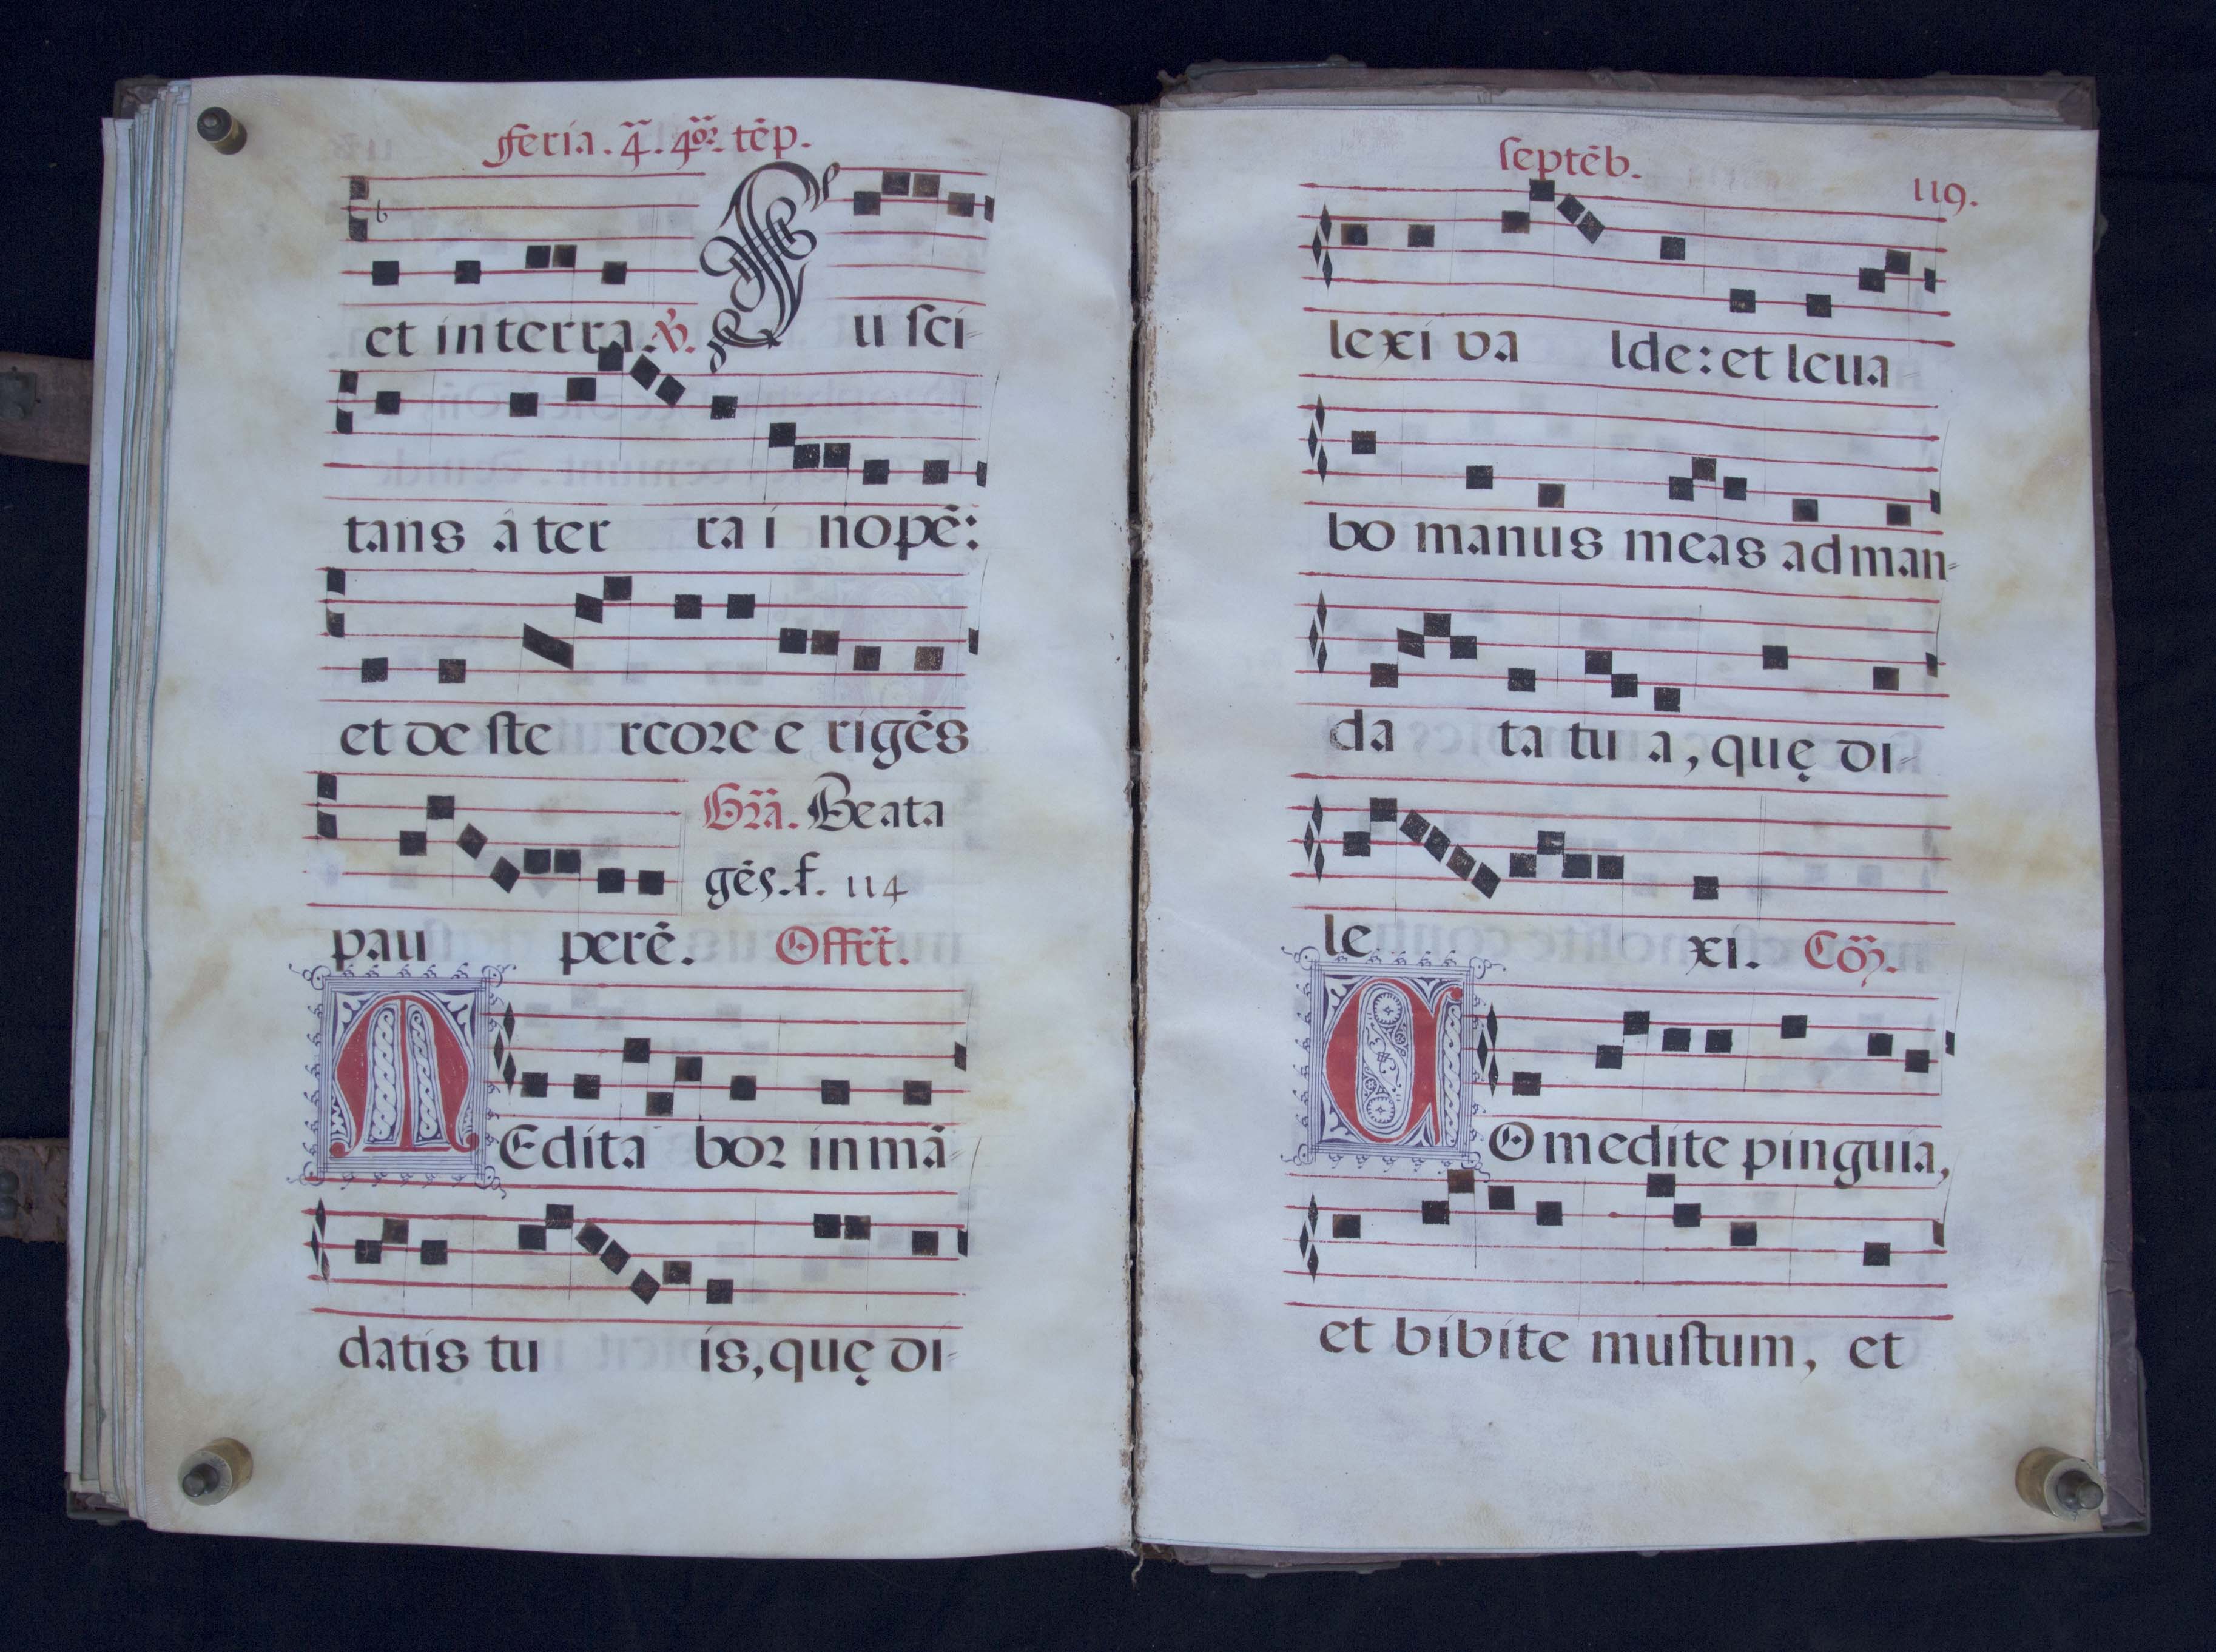 Feria. 4ᵃ. 4ᵒʳ. tēp.
et in terra. ℣. Su sci-
tans à ter ra i nopē:
et de ſte rcore e rigēs
Gr̃a. Beata
gēs. f. 114
pau perē. Offr̃t.
MEdita bor in mã-
datis tu is, quę di-
ſeptēb.
119.
lexi va lde: et leua-
bo manus meas ad man-
da ta tu a, quę di-
le xi. Cõ.
COmedite pinguia,
et bibite muſtum, et